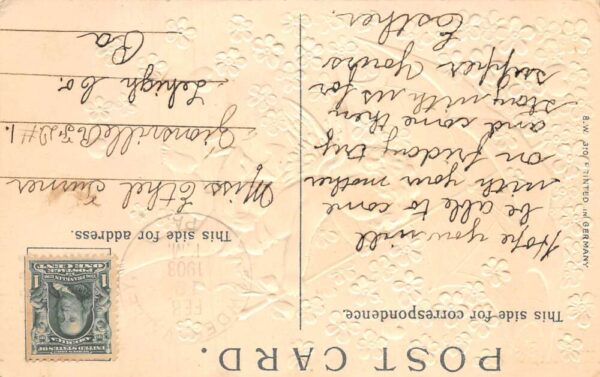 POST CARD.
This side for correspondence.
Hope you will
be able to come
with your mother
on friday
and come then
stay with us for
supper yours
Esther.
This side for address.
Miss Ethel Turner
Zionsville R.F.D #1.
Lehigh Co.
Pa
B. W. 310 PRINTED IN GERMANY
UNITED STATES OF
AMERICA
POSTAGE
ONE CENT
1 1
FEB
PA.